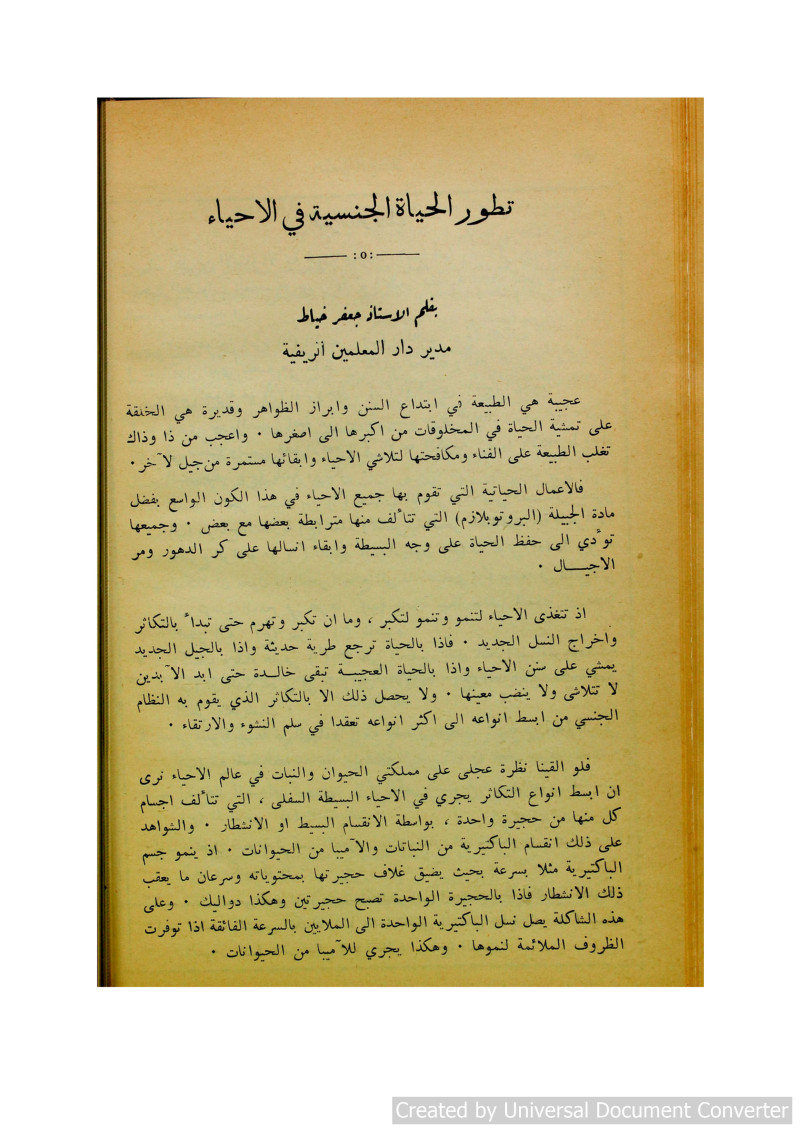 تطور الحياة الجنسية في الاحياء
:٥:
بقلم الاستاذ جعفر خياط
مدير دار المعلمين الريفية
عجيبة هي الطبيعة في ابتداع السنن وابراز الظواهر وقديرة هي الخلقة
على تمشية الحياة في المخلوقات من اكبرها الى اصغرها ٠ واعجب من ذا وذاك
تغلب الطبيعة على الفناء ومكافحتها لتلاشي الاحياء وابقائها مستمرة من جيل لآخر ٠
فالاعمال الحياتية التي تقوم بها جميع الاحياء في هذا الكون الواسع بفضل
مادة الجبيلة (البروتوبلازم) التي تتألف منها مترابطة بعضها مع بعض ٠ وجميعها
تؤدي الى حفظ الحياة على وجه البسيطة وابقاء انسالها على كر الدهور ومر
الاجيـــال ٠
اذ تتغذى الاحياء لتنمو وتنمو لتكبر ، وما ان تكبر وتهرم حتى تبدأ بالتكاثر
واخراج النسل الجديد ٠ فاذا بالحياة ترجع طرية حديثة واذا بالجيل الجديد
يمشي على سنن الاحياء واذا بالحياة العجيبــة تبقى خالــدة حتى ابد الآبدين
لا تتلاشى ولا ينضب معينها ٠ ولا يحصل ذلك الا بالتكاثر الذي يقوم به النظام
الجنسي من ابسط انواعه الى اكثر انواعه تعقدا في سلم النشوء والارتقاء ٠
فلو القينا نظرة عجلى على مملكتي الحيوان والنبات في عالم الاحياء نرى
ان ابسط انواع التكاثر يجري في الاحياء البسيطة السفلى ، التي تتألف اجسام
كل منها من حجيرة واحدة ، بواسطة الانقسام البسيط او الانشطار ٠ والشواهد
على ذلك انقسام الباكتيرية من النباتات والآميبا من الحيوانات ٠ اذ ينمو جسم
الباكتيرية مثلا بسرعة بحيث يضيق غلاف حجيرتها بمحتوياته وسرعان ما يعقب
ذلك الانشطار فاذا بالحجيرة الواحدة تصبح حجيرتين وهكذا دواليك ٠ وعلى
هذه الشاكلة يصل نسل الباكتيرية الواحدة الى الملايين بالسرعة الفائقة اذا توفرت
الظروف الملائمة لنموها ٠ وهكذا يجري للآميبا من الحيوانات ٠
Created by Universal Document Converter